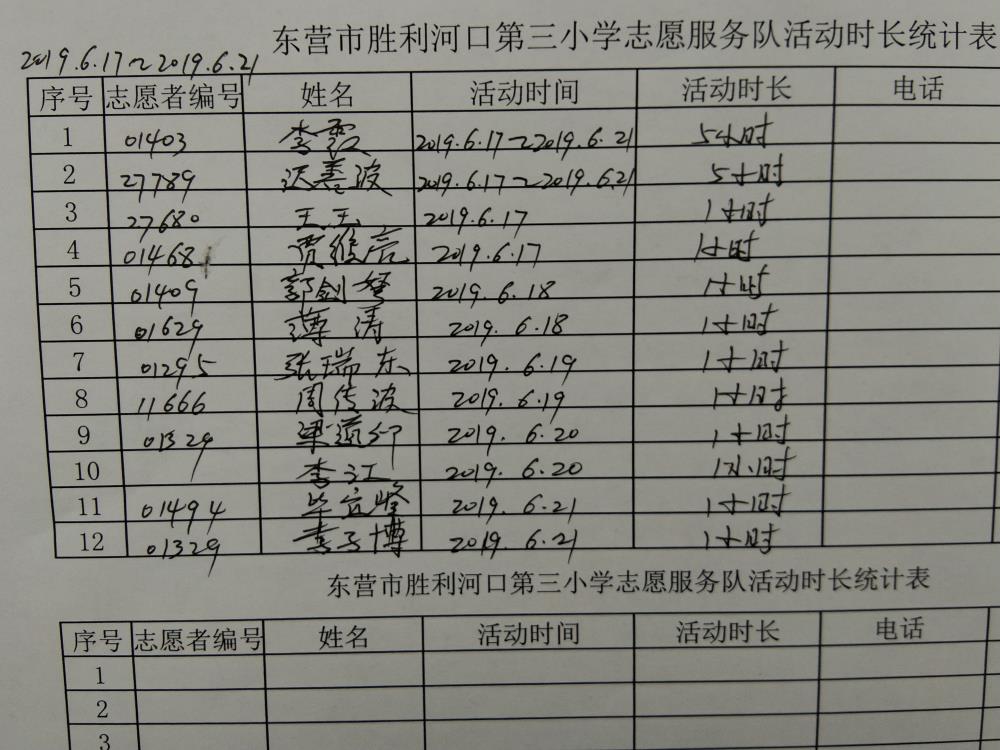 东营市胜利河口第三小学志愿服务队活动时长统计表
2019.6.17～2019.6.21
序号 志愿者编号 姓名 活动时间 活动时长 电话
1 01403 李霞 2019.6.17～2019.6.21 5小时
2 27789 汉善波 2019.6.17～2019.6.21 5小时
3 27680 王玉 2019.6.17 1小时
4 01468 贾维亮 2019.6.17 1小时
5 01409 郭剑梦 2019.6.18 1小时
6 01629 薄涛 2019.6.18 1小时
7 01295 张瑞东 2019.6.19 1小时
8 11666 周传波 2019.6.19 1小时
9 01329 梁 2019.6.20 1小时
10 李江 2019.6.20 1小时
11 01494 毕 峰 2019.6.21 1小时
12 01329 子博 2019.6.21 1小时
东营市胜利河口第三小学志愿服务队活动时长统计表
序号 志愿者编号 姓名 活动时间 活动时长 电话
1
2
3